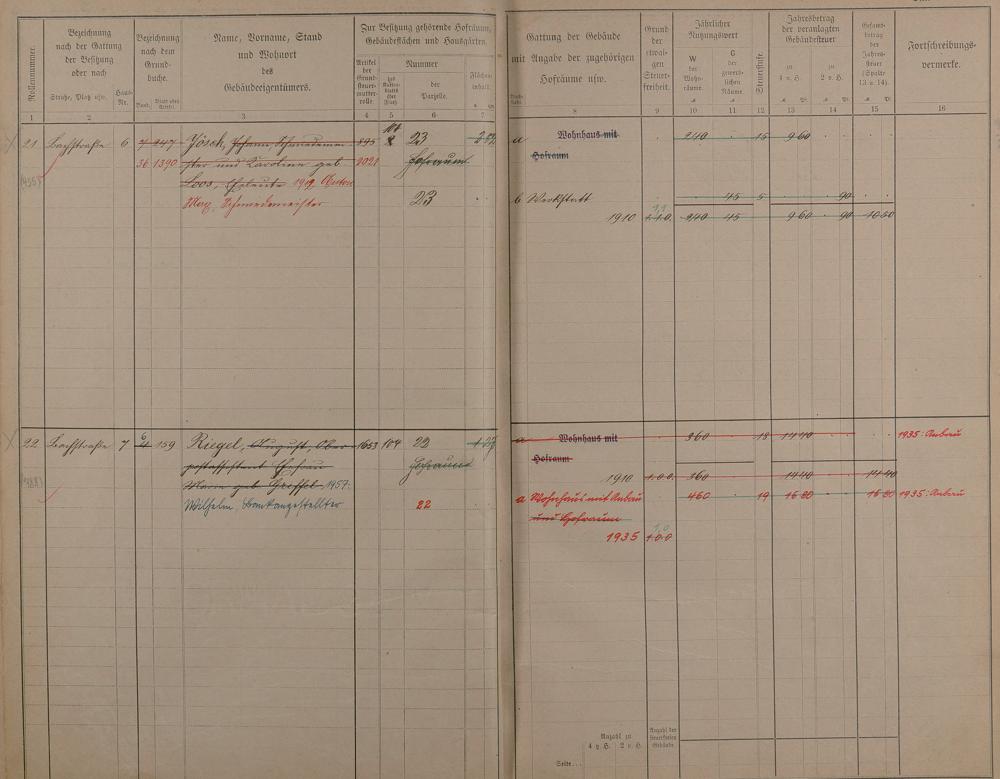 Rollennummer.
Bezeichnung nach der Gattung der Besitzung oder nach
Straße, Platz usw.
Haus-Nr.
Bezeichnung nach dem Grundbuche.
Band.
Name, Vorname, Stand und Wohnort des Gebäudeeigentümers.
Zur Besitzung gehörende Hofräume, Gebäudeflächen und Hausgärten.
Artikel der Grundsteuermutterrolle.
Nummer
des Kartenblatts (Flur)
der Parzelle.
Flächeninhalt.
Gattung der Gebäude mit Angabe der zugehörigen Hofräume usw.
Grund der etwaigen Steuerfreiheit.
Jährlicher Nutzungswert
W der Wohnräume.
G der gewerblichen Räume.
Steuerstufe.
Jahresbetrag der veranlagten Gebäudesteuer
zu 4 v. H.
zu 2 v. H.
Gesamtbetrag der Jahressteuer (Spalte 13 u. 14).
Fortschreibungsvermerke.
1 2 3 4 5 6 7 8 9 10 11 12 13 14 15 16
21. Bachstraße 6 7 247 Jösch, Johann Schmiedemei- 895 104 23 2 82 a Wohnhaus mit 240 15 9 60
36 1390 ster und Karoline geb 2021 Hofraum Hofraum
Loos, Eheleute 1919, Anton
Merz, Schmiedemeister 23 b Werkstatt 45 5 90
1910 1.1.0. 240 45 9 60 90 10 50
1,1
22. Bachstraße 7 159 Riegel, August, Ober- 1653 104 22 a Wohnhaus mit 360 18 14 40 1935: Anbau
postassistent Ehefrau Hofraum Hofraum
Marie geb Greffel 1957: 1910 1.0.0. 360 14 40 14 40
Wilhelm, Bankangestellter 22 a Wohnhaus mit Anbau 460 19 16 80 16 80 1935: Anbau
und Hofraum
1935 1.0.0
1,0
Anzahl zu
4 v. H. 2 v. H.
Anzahl der steuerfreien Gebäude.
Seite...